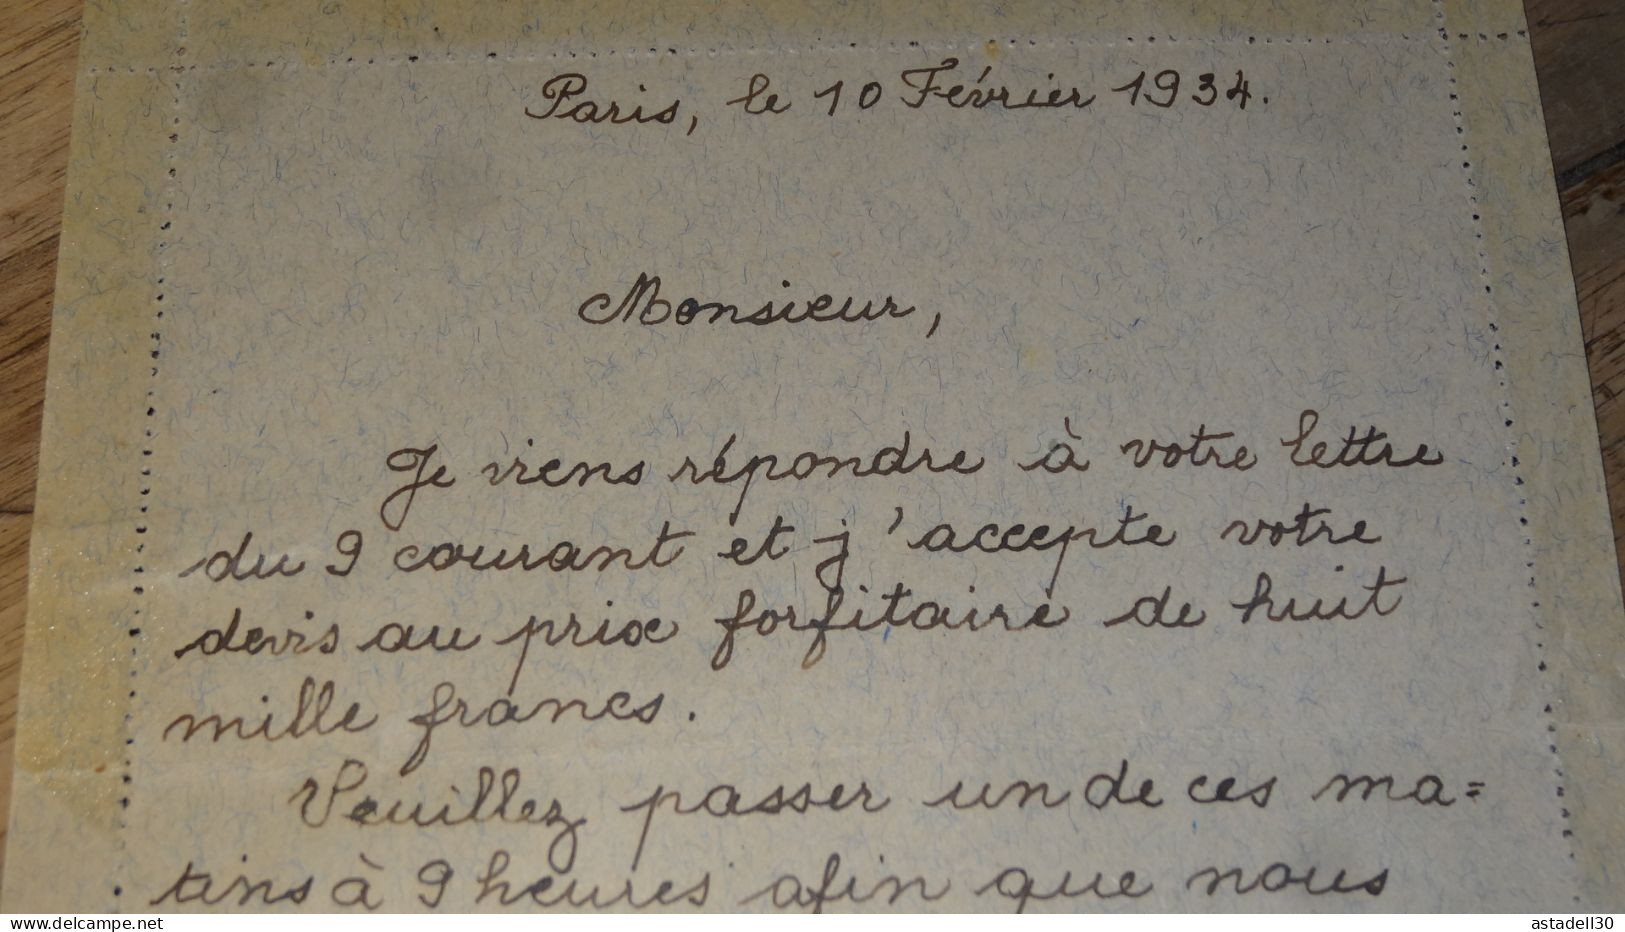 Paris, le 10 Février 1934.
Monsieur,
Je viens répondre à votre lettre
du 9 courant et j'accepte votre
devis au prix forfitaire de huit
mille francs.
Veuillez passer un de ces ma=
tins à 9 heures afin que nous
www.delcampe.net
astadell30